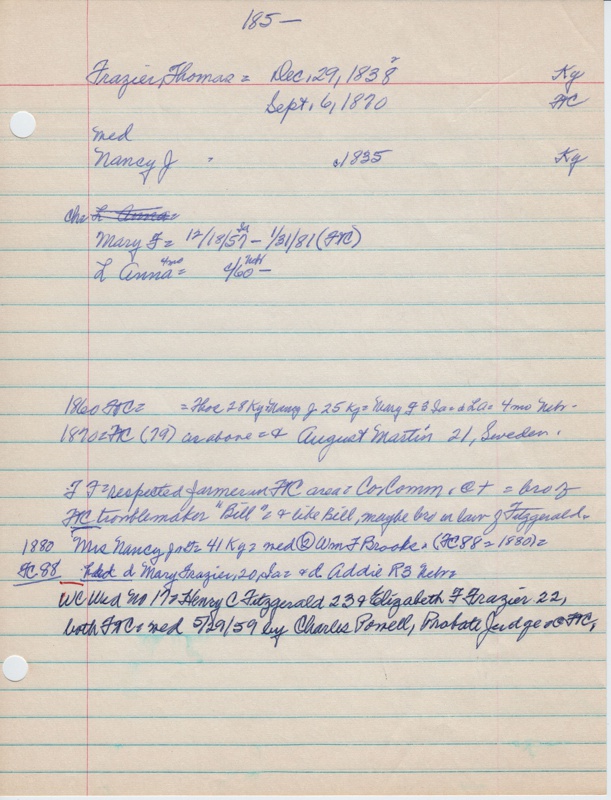 185—
Frazier, Thomas = Dec, 29, 1838 ? Ky
Sept, 6, 1870 FTC
med
Nancy J = c1835 Ky
ch= L Anna=
Mary F = 12/18/57 Ia – 1/31/81 (FTC)
L Anna 4mo = c/60 Neb –
1860 FTC = = Thos 28 Ky Nancy J 25 Ky = Mary F 3 Ia = & LA = 4 mo Nebr-
1870 = FTC (79) as above = & August Martin 21, Sweden.
T F = respected farmer in FTC area = Co, Comm, = bro of
FTC troublemaker "Bill" = & like Bill, maybe bro in law of Fitzgerald.
1880 Mrs Nancy J = 41 Ky = med ② Wm F Brooks. (FC 88 = 1880) =
FC 88 d Mary Frazier, 20, Ia = & d Addie R 3 Nebr
WC Wed No 17 = Henry C Fitzgerald 23 & Elizabeth F Frazier 22,
both FTC = med 5/29/59 by Charles Powell, Probate Judge FTC,